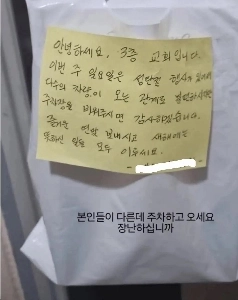 안녕하세요, 3층 교회입니다.
이번 주 일요일은 성탄절 행사가 있어서
다수의 차량이 오는 관계로 힘드시지만
주차장을 비워주시면 감사하겠습니다.
즐거운 연말 보내시고 새해에는
뜻하신 일들 모두 이루세요.
본인들이 다른데 주차하고 오세요
장난하십니까